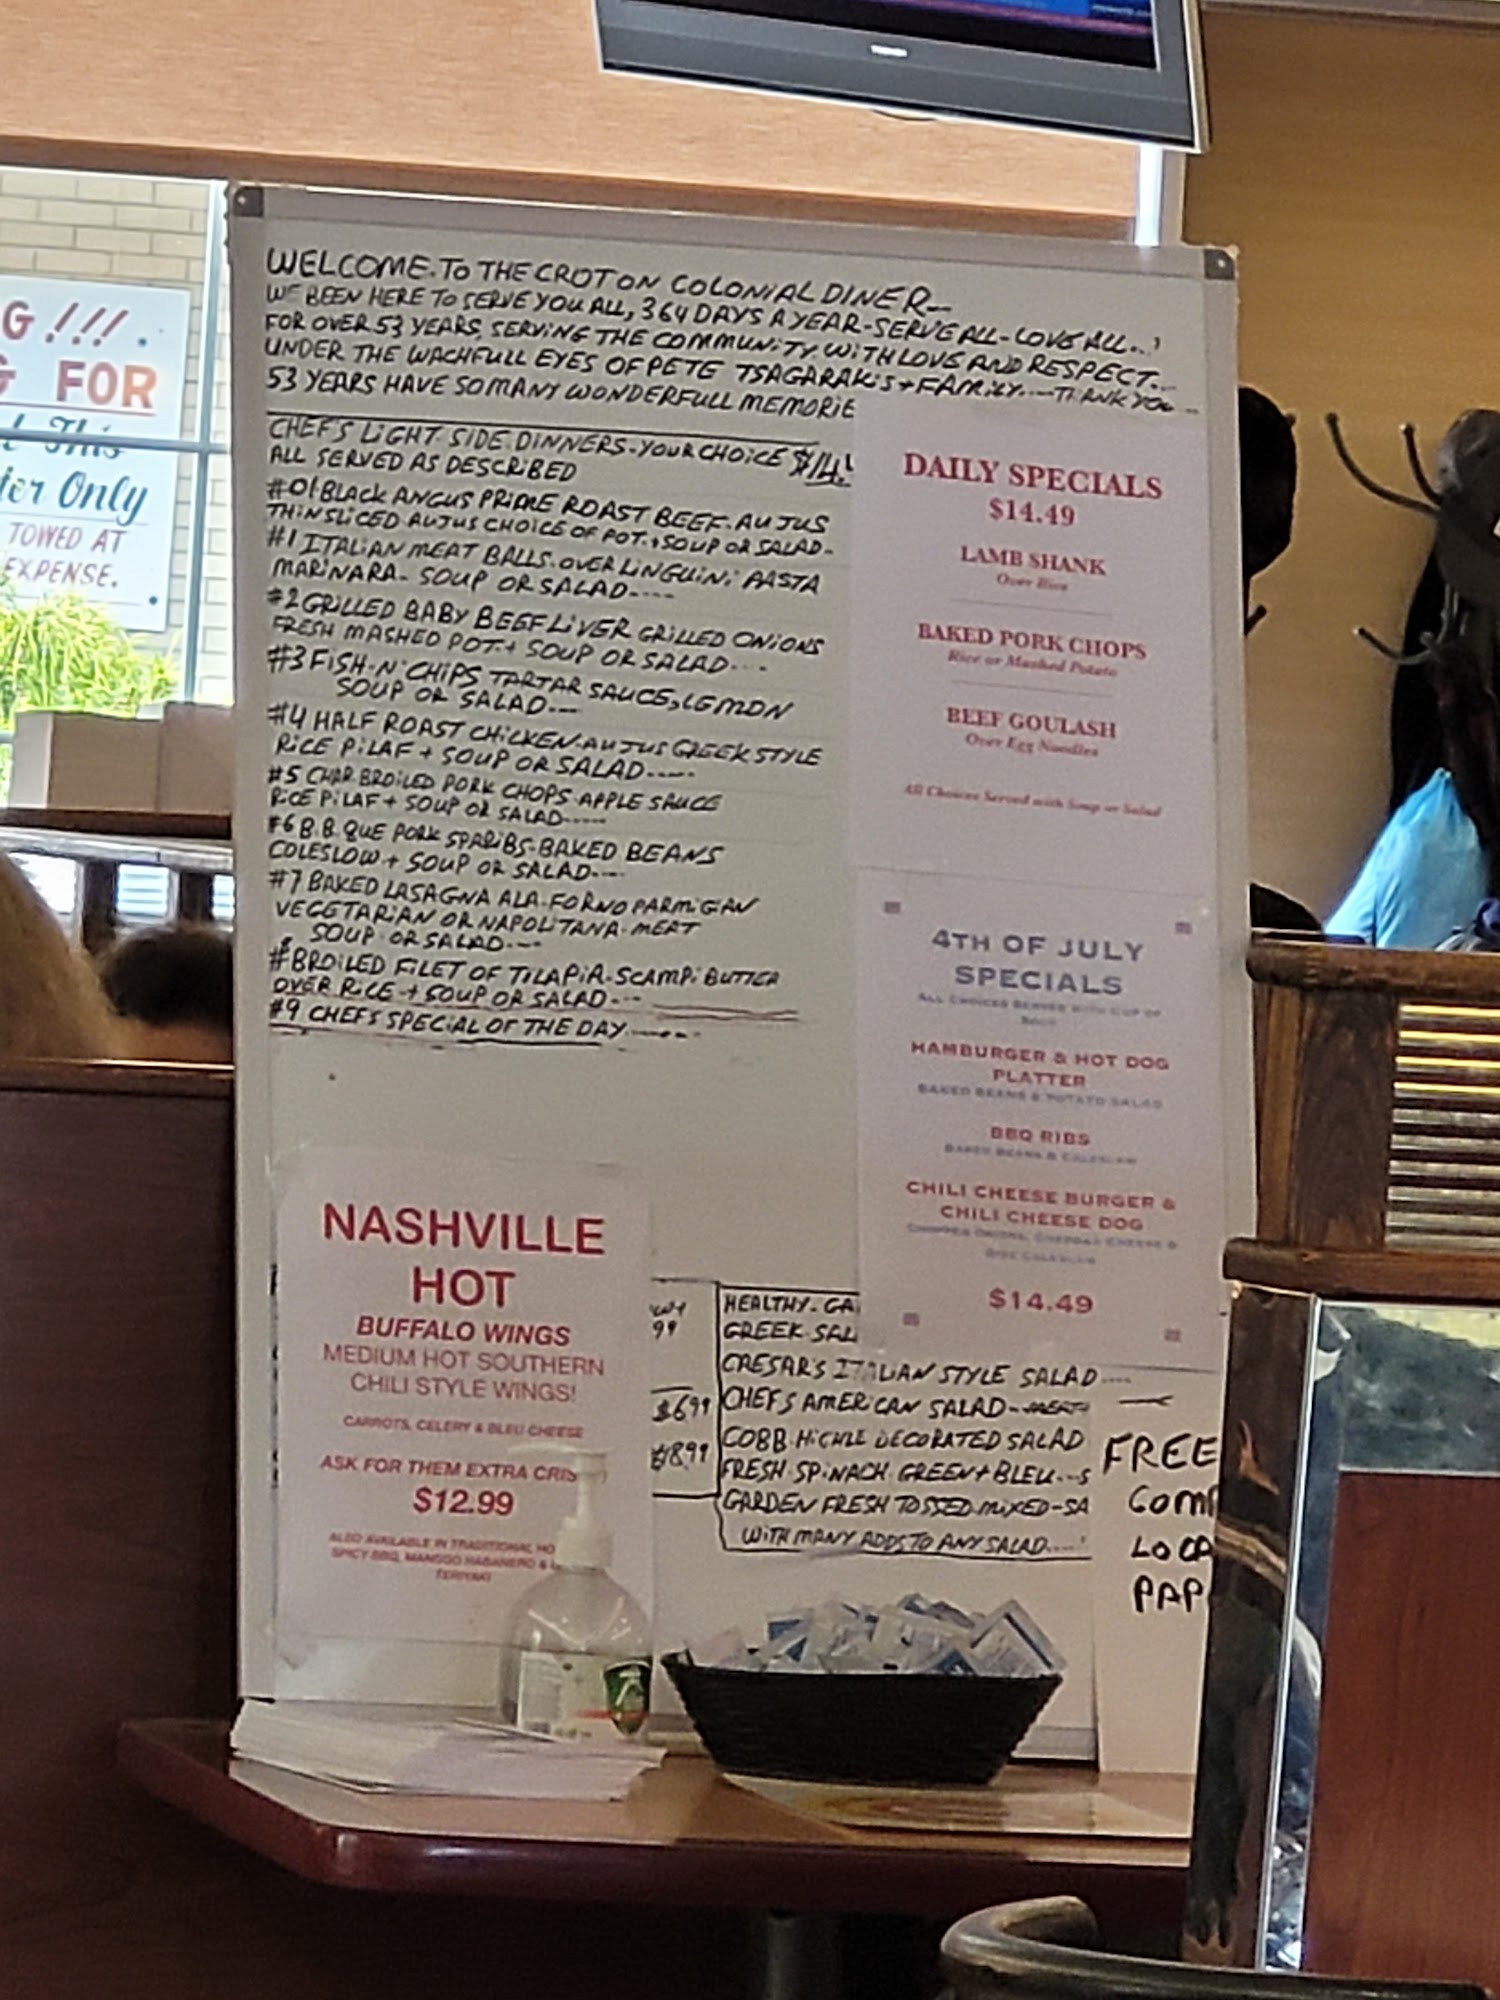 TOSHIBA
G !!!
G FOR
l This
ter Only
TOWED AT
EXPENSE.
WELCOME.TO THE CROTON COLONIAL DINER---
WE BEEN HERE TO SERVE YOU ALL, 364 DAYS A YEAR-SERVE ALL-LOVE ALL...!
FOR OVER 53 YEARS, SERVING THE COMMUNITY, WITH LOVE AND RESPECT...
UNDER THE WACHFULL EYES OF PETE TSAGARAKIS + FAMILY....THANK YOU...
53 YEARS HAVE SO MANY WONDERFULL MEMORIE
CHEF'S LIGHT SIDE DINNERS-YOUR CHOICE $14.
ALL SERVED AS DESCRIBED
#01 BLACK ANGUS PRIME ROAST BEEF-AU JUS
THIN SLICED AU JUS CHOICE OF POT.+SOUP OR SALAD-
#1 ITALIAN MEAT BALLS.OVER LINGUINI PASTA
MARINARA- SOUP OR SALAD----
#2 GRILLED BABY BEEF LIVER GRILLED ONIONS
FRESH MASHED POT.+ SOUP OR SALAD---
#3 FISH-N-CHIPS TARTAR SAUCE, LEMON
SOUP OR SALAD---
#4 HALF ROAST CHICKEN-AU JUS GREEK STYLE
RICE PILAF + SOUP OR SALAD-----
#5 CHAR BROILED PORK CHOPS-APPLE SAUCE
RICE PILAF + SOUP OR SALAD-----
#6 B.B.QUE PORK SPARIBS-BAKED BEANS
COLESLOW + SOUP OR SALAD----
#7 BAKED LASAGNA ALA-FORNO PARMIGIAN
VEGETARIAN OR NAPOLITANA-MEAT
SOUP-OR SALAD----
#8 BROILED FILET OF TILAPIA-SCAMPI BUTTER
OVER RICE + SOUP OR SALAD---
#9 CHEFS SPECIAL OF THE DAY.------
DAILY SPECIALS
$14.49
LAMB SHANK
Over Rice
BAKED PORK CHOPS
Rice or Mashed Potato
BEEF GOULASH
Over Egg Noodles
All Choices Served with Soup or Salad
4TH OF JULY
SPECIALS
ALL CHOICES SERVED WITH CUP OF
SOUP
HAMBURGER & HOT DOG
PLATTER
BAKED BEANS & POTATO SALAD
BBQ RIBS
BAKED BEANS & COLESLAW
CHILI CHEESE BURGER &
CHILI CHEESE DOG
CHOPPED ONIONS, CHEDDAR CHEESE &
SIDE COLESLAW
$14.49
NASHVILLE
HOT
BUFFALO WINGS
MEDIUM HOT SOUTHERN
CHILI STYLE WINGS!
CARROTS, CELERY & BLEU CHEESE
ASK FOR THEM EXTRA CRIS
$12.99
ALSO AVAILABLE IN TRADITIONAL HO
SPICY BBQ, MANGGO HABANERO &
TERIYAKI
99
$6.99
$18.99
HEALTHY-GA
GREEK SAL
CAESAR'S ITALIAN STYLE SALAD----
CHEFS AMERICAN SALAD-MEAT
COBB-HIGHLE DECORATED SALAD
FRESH SPINACH GREEN + BLEU...S
GARDEN FRESH TOSSED MIXED-SA
WITH MANY ADDS TO ANY SALAD....!
FREE
COM
LOCA
PAP